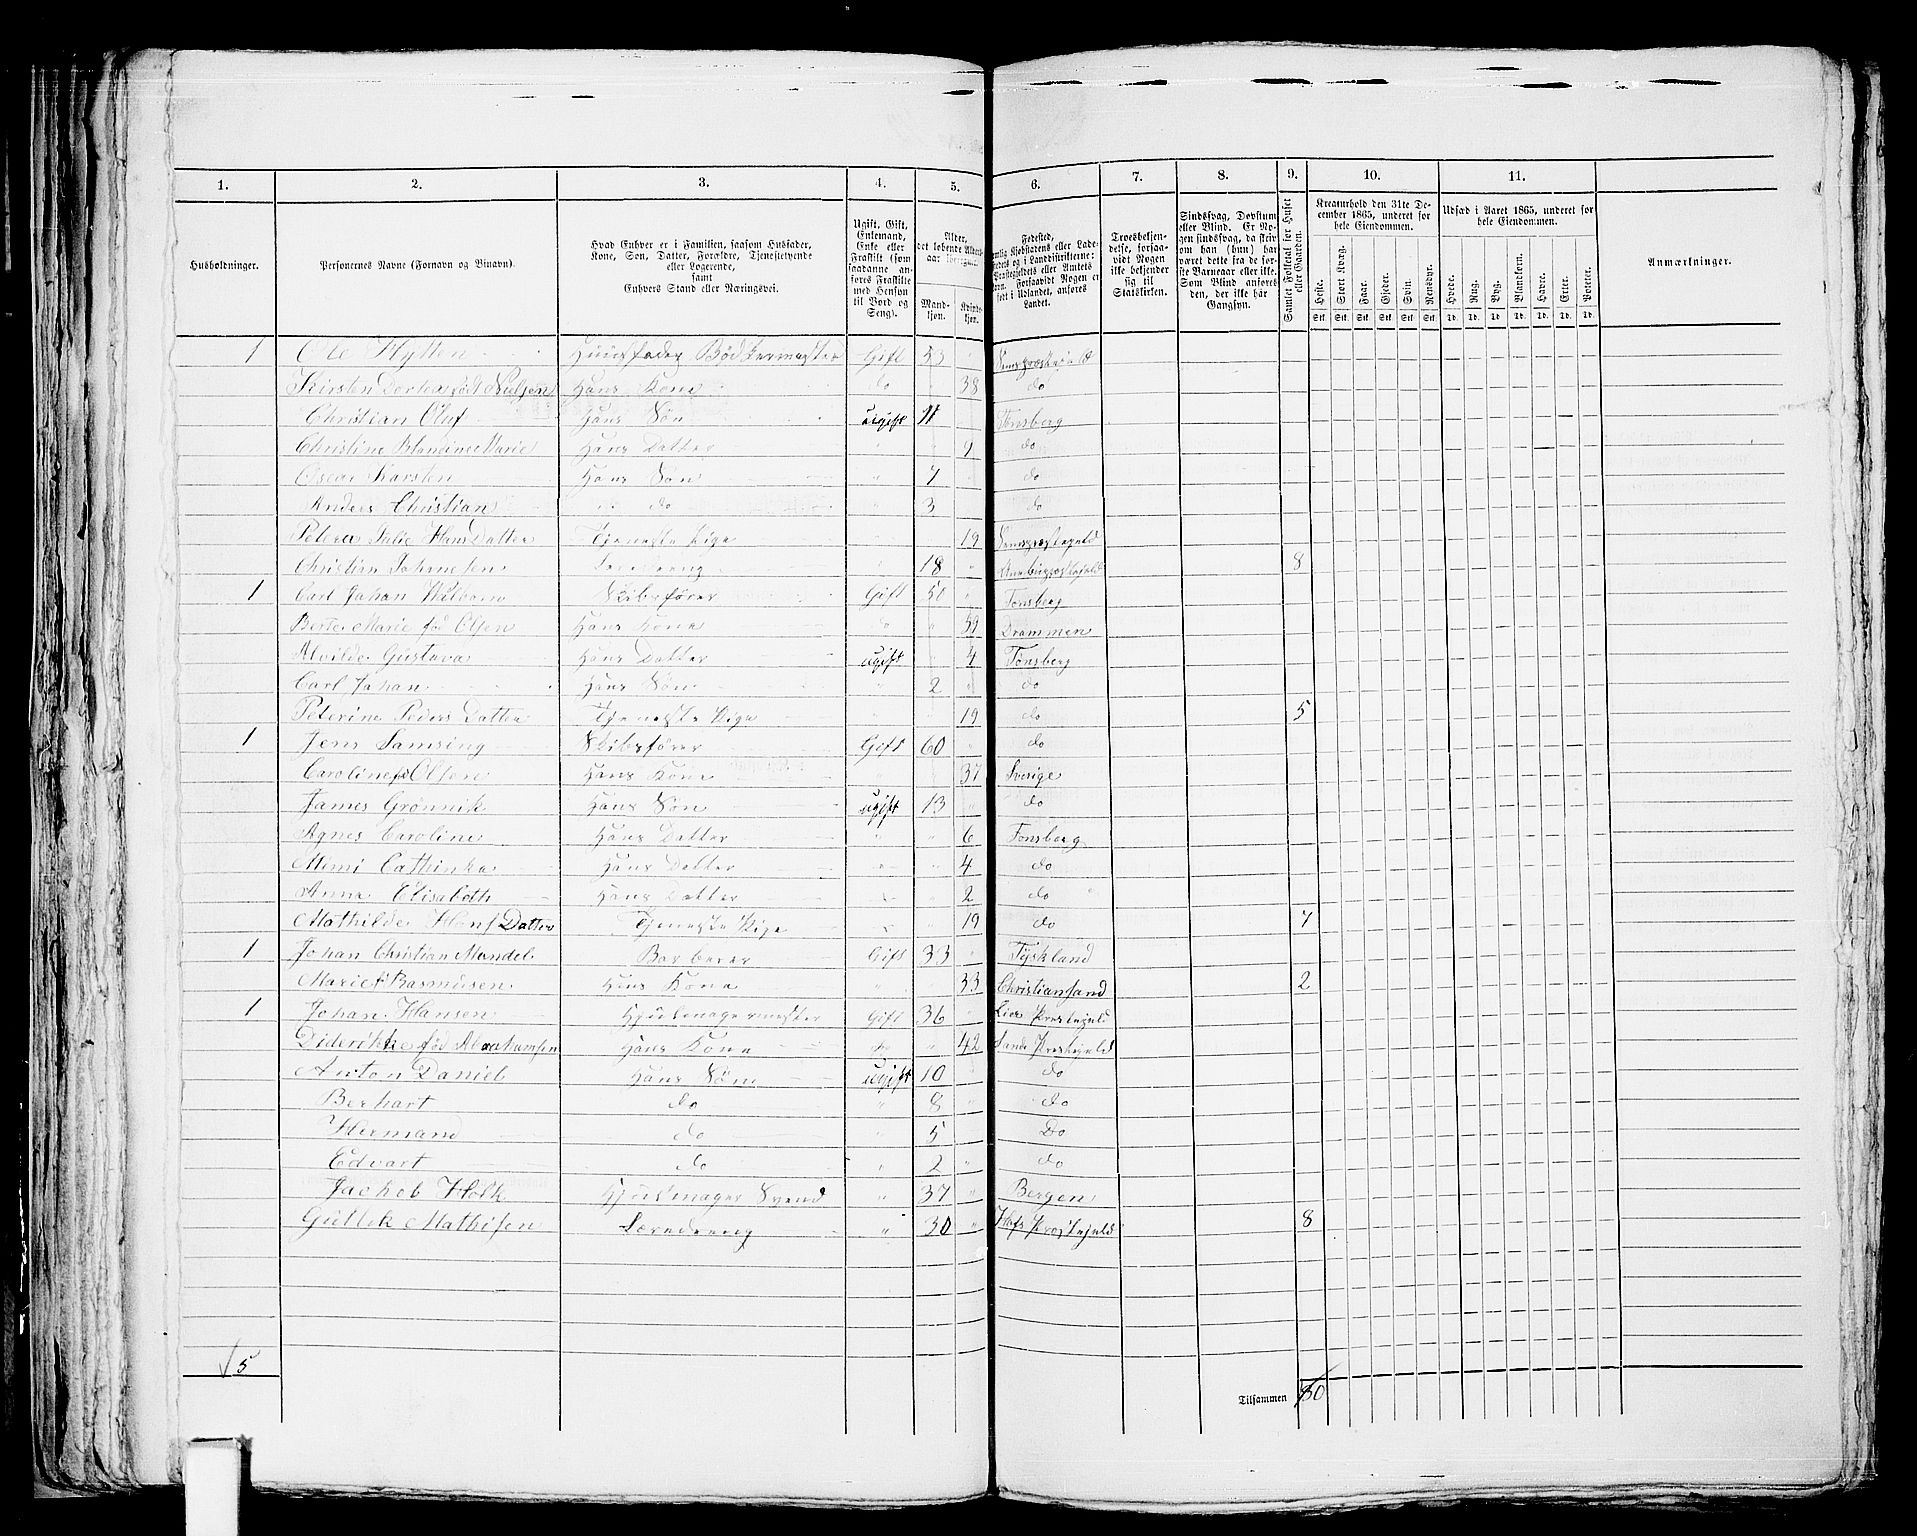 1. 2. 3. 4. 5. 6. 7. 8. 9. 10. 11.
Husholdninger. Personernes Navne (Fornavn og Tilnavn). Hvad Enhver er i Familien, saasom Husfader, Kone, Søn, Datter, Forældre, Tjenestetyende eller Logerende, samt Enhvers Stand eller Næringsvei. Ugift, Gift, Enkemand, Enke eller Fraskilt (som saadanne anføres Fraskilte med Hensyn til Bord og Seng). Alder, det løbende Alders-aar iberegnet. Mand-kjøn. Kvinde-kjøn. Fødested, Troesbekjendelse, forsaavidt Nogen ikke bekjender sig til Statskirken. Sindssvag, Døvstum eller Blind. Er Nogen sindssvag, da skrives om han (hun) har været dette fra de første Barneaar eller ikke. Som Blind anføres den, der ikke har Gangsyn. Samlet Folketal for Huset eller Gaarden. Kreaturhold den 31te December 1865, underet for hele Eiendommen. Heste. Stort Kvæg. Faar. Gjeder. Svin. Rensdyr. Udsæd i Aaret 1865, underet for hele Eiendommen. Hvede. Rug. Byg. Blandkorn. Havre. Erter. Poteter. Anmærkninger.
Stk. Stk. Stk. Stk. Stk. Stk. Td. Td. Td. Td. Td. Td. Td.
1 Ole Hytten Huusfader Bødkermester Gift 53 "
Kirsten Dortea født Nielsen Hans Kone do 38 do
Christian Oluf Hans Søn ugift 11 Tønsberg
Christine Blandine Marie Hans Datter 9 do
Oscar Karsten Hans Søn " 7 do
Anders Christian do do " 3 do
Petera Julie Hans Datter Tjeneste Pige 19 Semspræstegjeld
Christian Johannesen Læredreng " 18 " 8
1 Carl Johan Skibsfører Gift 50 " Tønsberg
Berte Marie fød Olsen Hans Kone do " 39 Drammen
Alvilde Gustava Hans Datter ugift " 4 Tønsberg
Carl Johan Hans Søn " 2 " do
Peterine Peders Datter Tjeneste Pige 19 do 5
1 Jens Samsing Skibsfører Gift 60 " do
Caroline fd Olsen Hans Kone " " 37 Sverige
James Grønnik Hans Søn ugift 13 " do
Agnes Caroline Hans Datter " " 6 Tønsberg
Mimi Cathinka Hans Datter " " 4 do
Anna Elisabeth Hans Datter " " 2 do "
Mathilde Hans Datter Tjeneste Pige " 19 do 7
1 Johan Christian Mandel Barberer Gift 33 " Tyskland
Marie f Rasmusen Hans Kone " " 33 Christiansand 2
1 Johan Hansen Hjulmagermester Gift 36 " Lier Prestegjeld
Diderikke fød Abrahamsen Hans Kone do " 42 Sande Prestegjeld
Anton Daniel Hans Søn ugift 10 " do
Berhart do " 8 " do
Hermand do " 5 " Do
Edvart do " 2 " do
Jachob Holk Hjulmager Svend " 37 " Bergen
Gullik Mathisen Læredreng " 30 " Hofs Præstegjeld 8
5
Tilsammen 30